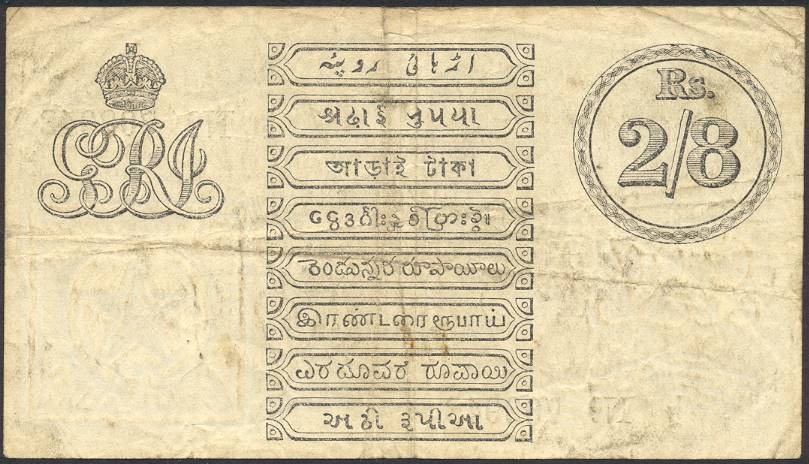 GRI
اڑہائی روپیہ
अढाई रुपया
আড়াই টাকা
రెండున్నర రూపాయీలు
இரண்டரை ரூபாய்
ಎರಡೂವರೆ ರೂಪಾಯಿ
અઢી રૂપીઆ
Rs.
2/8